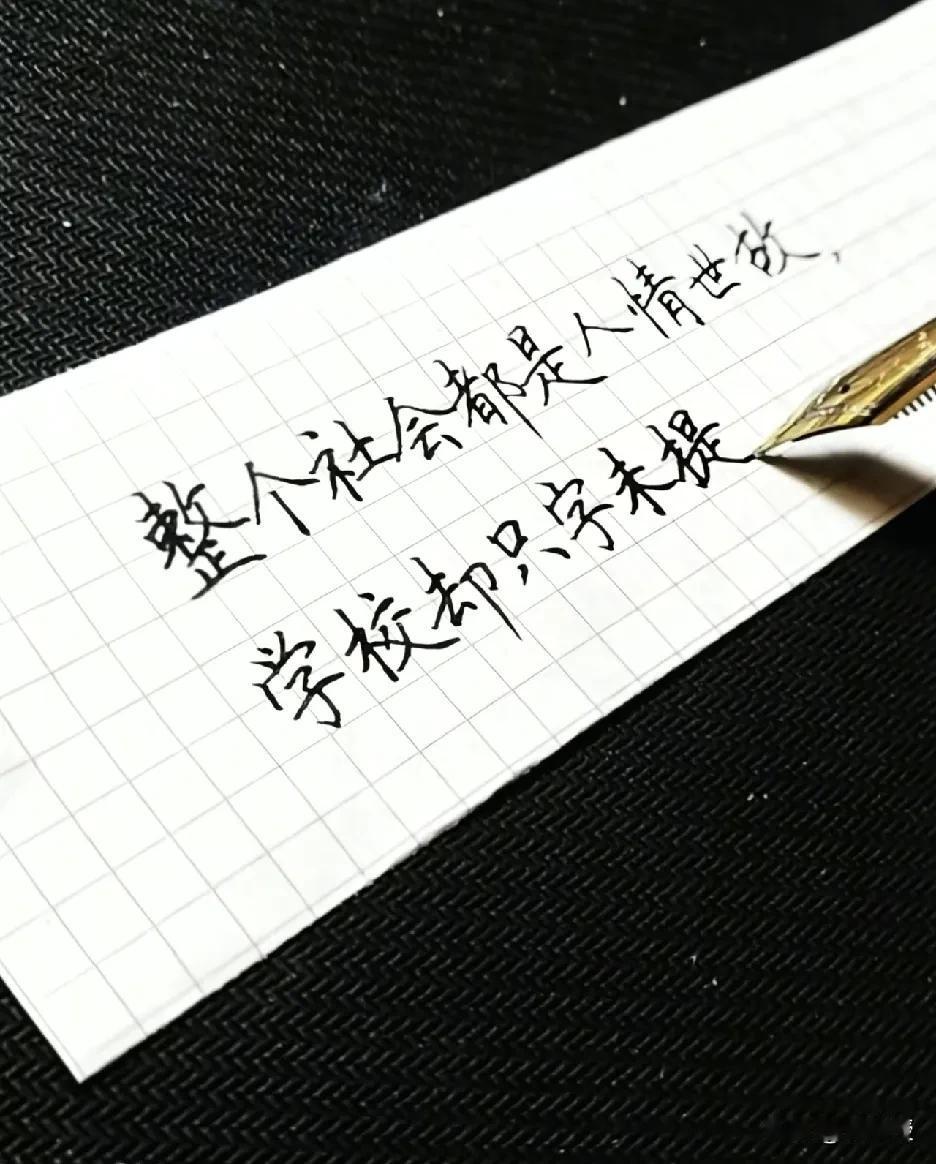 整个社会都是人情世故，
学校却只字未提